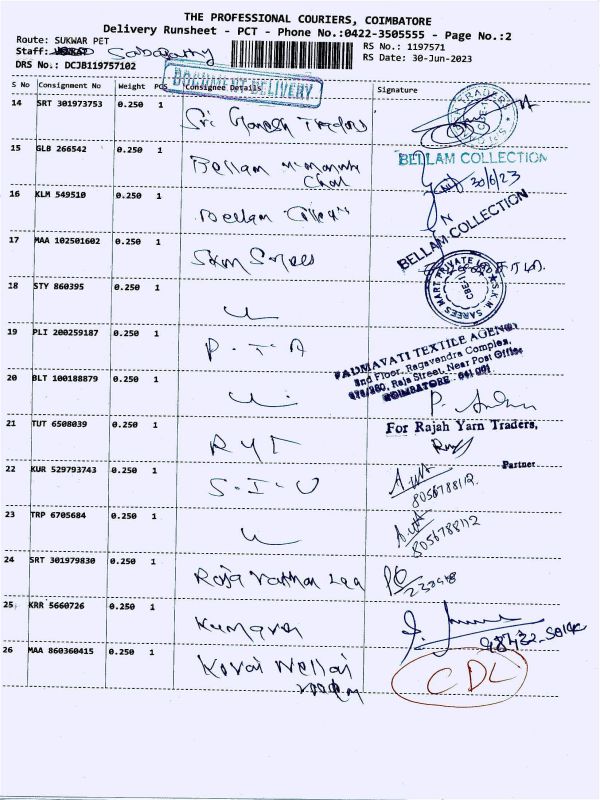 THE PROFESSIONAL COURIERS, COIMBATORE
Delivery Runsheet - PCT - Phone No.:0422-3505555 - Page No.:2
Route: SUKWAR PET
RS No.: 1197571
Staff: Sabapathy
RS Date: 30-Jun-2023
DRS No.: DCJB119757102
DOCUMENT DELIVERY
S No Consignment No Weight PCS Consignee Details Signature
14 SRT 301973753 0.250 1 Sri Ganesh Traders
15 GLB 266542 0.250 1 Bellam
BELLAM COLLECTION
30/6/23
16 KLM 549510 0.250 1 Bellam
BELLAM COLLECTION
17 MAA 102501602 0.250 1 SKM Sarees
S.K.M. SAREES MART PRIVATE
CBE-1
18 STY 860395 0.250 1
19 PLI 200259187 0.250 1 P-T-A
PADMAVATI TEXTILE AGENCY
2nd Floor, Ragavendra Complex,
Raja Street, Near Post Office
COIMBATORE - 641 001
20 BLT 100188879 0.250 1
21 TUT 6508039 0.250 1 RYT
For Rajah Yarn Traders,
Partner
22 KUR 529793743 0.250 1 S-I-U
8056788112
23 TRP 6705684 0.250 1
8056788112
24 SRT 301979830 0.250 1 Raja
25 KRR 5660726 0.250 1 Kumaran
26 MAA 860360415 0.250 1 Kovai
CDL